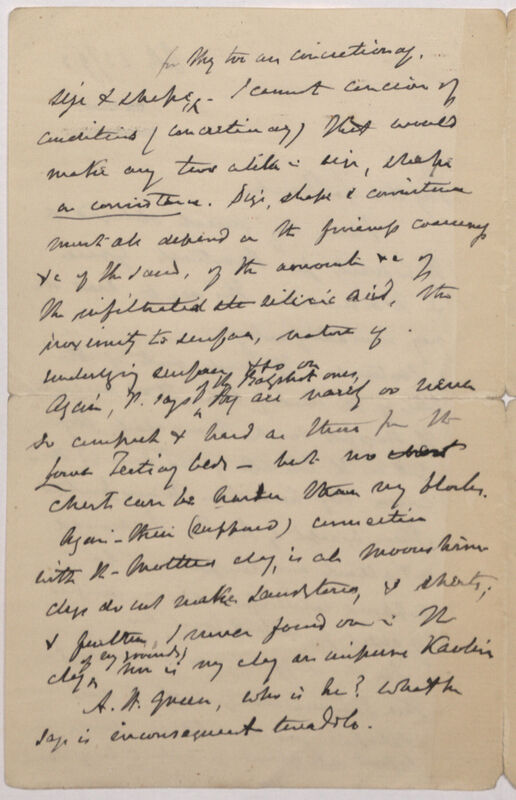 for my two are concretion of.
size & shape, - I cannot conceive of
conditions (concretionary) that would
make any two alike in size, shape
or consistence. Size, shape & consistence
must all depend on the fineness coarseness
&c of the sand, of the amount &c of
the infiltrated silicic acid, the
proximity to surface, nature of
underlying surfaces & so on
Again, P. says of the Bagshot ones, they are rarely or never
so compact & hard as those from the
Lower Tertiary beds - but no
chert can be harder than my blocks.
Again - their (supposed) connection
with the mottled clay, is all moonshine
clays do not make sandstones, & cherts;
& further, I never found one in the
clay of my grounds, nor is my clay an impure Kaolin
A. H. Green, who is he? what he
says is inconsequent twaddle.